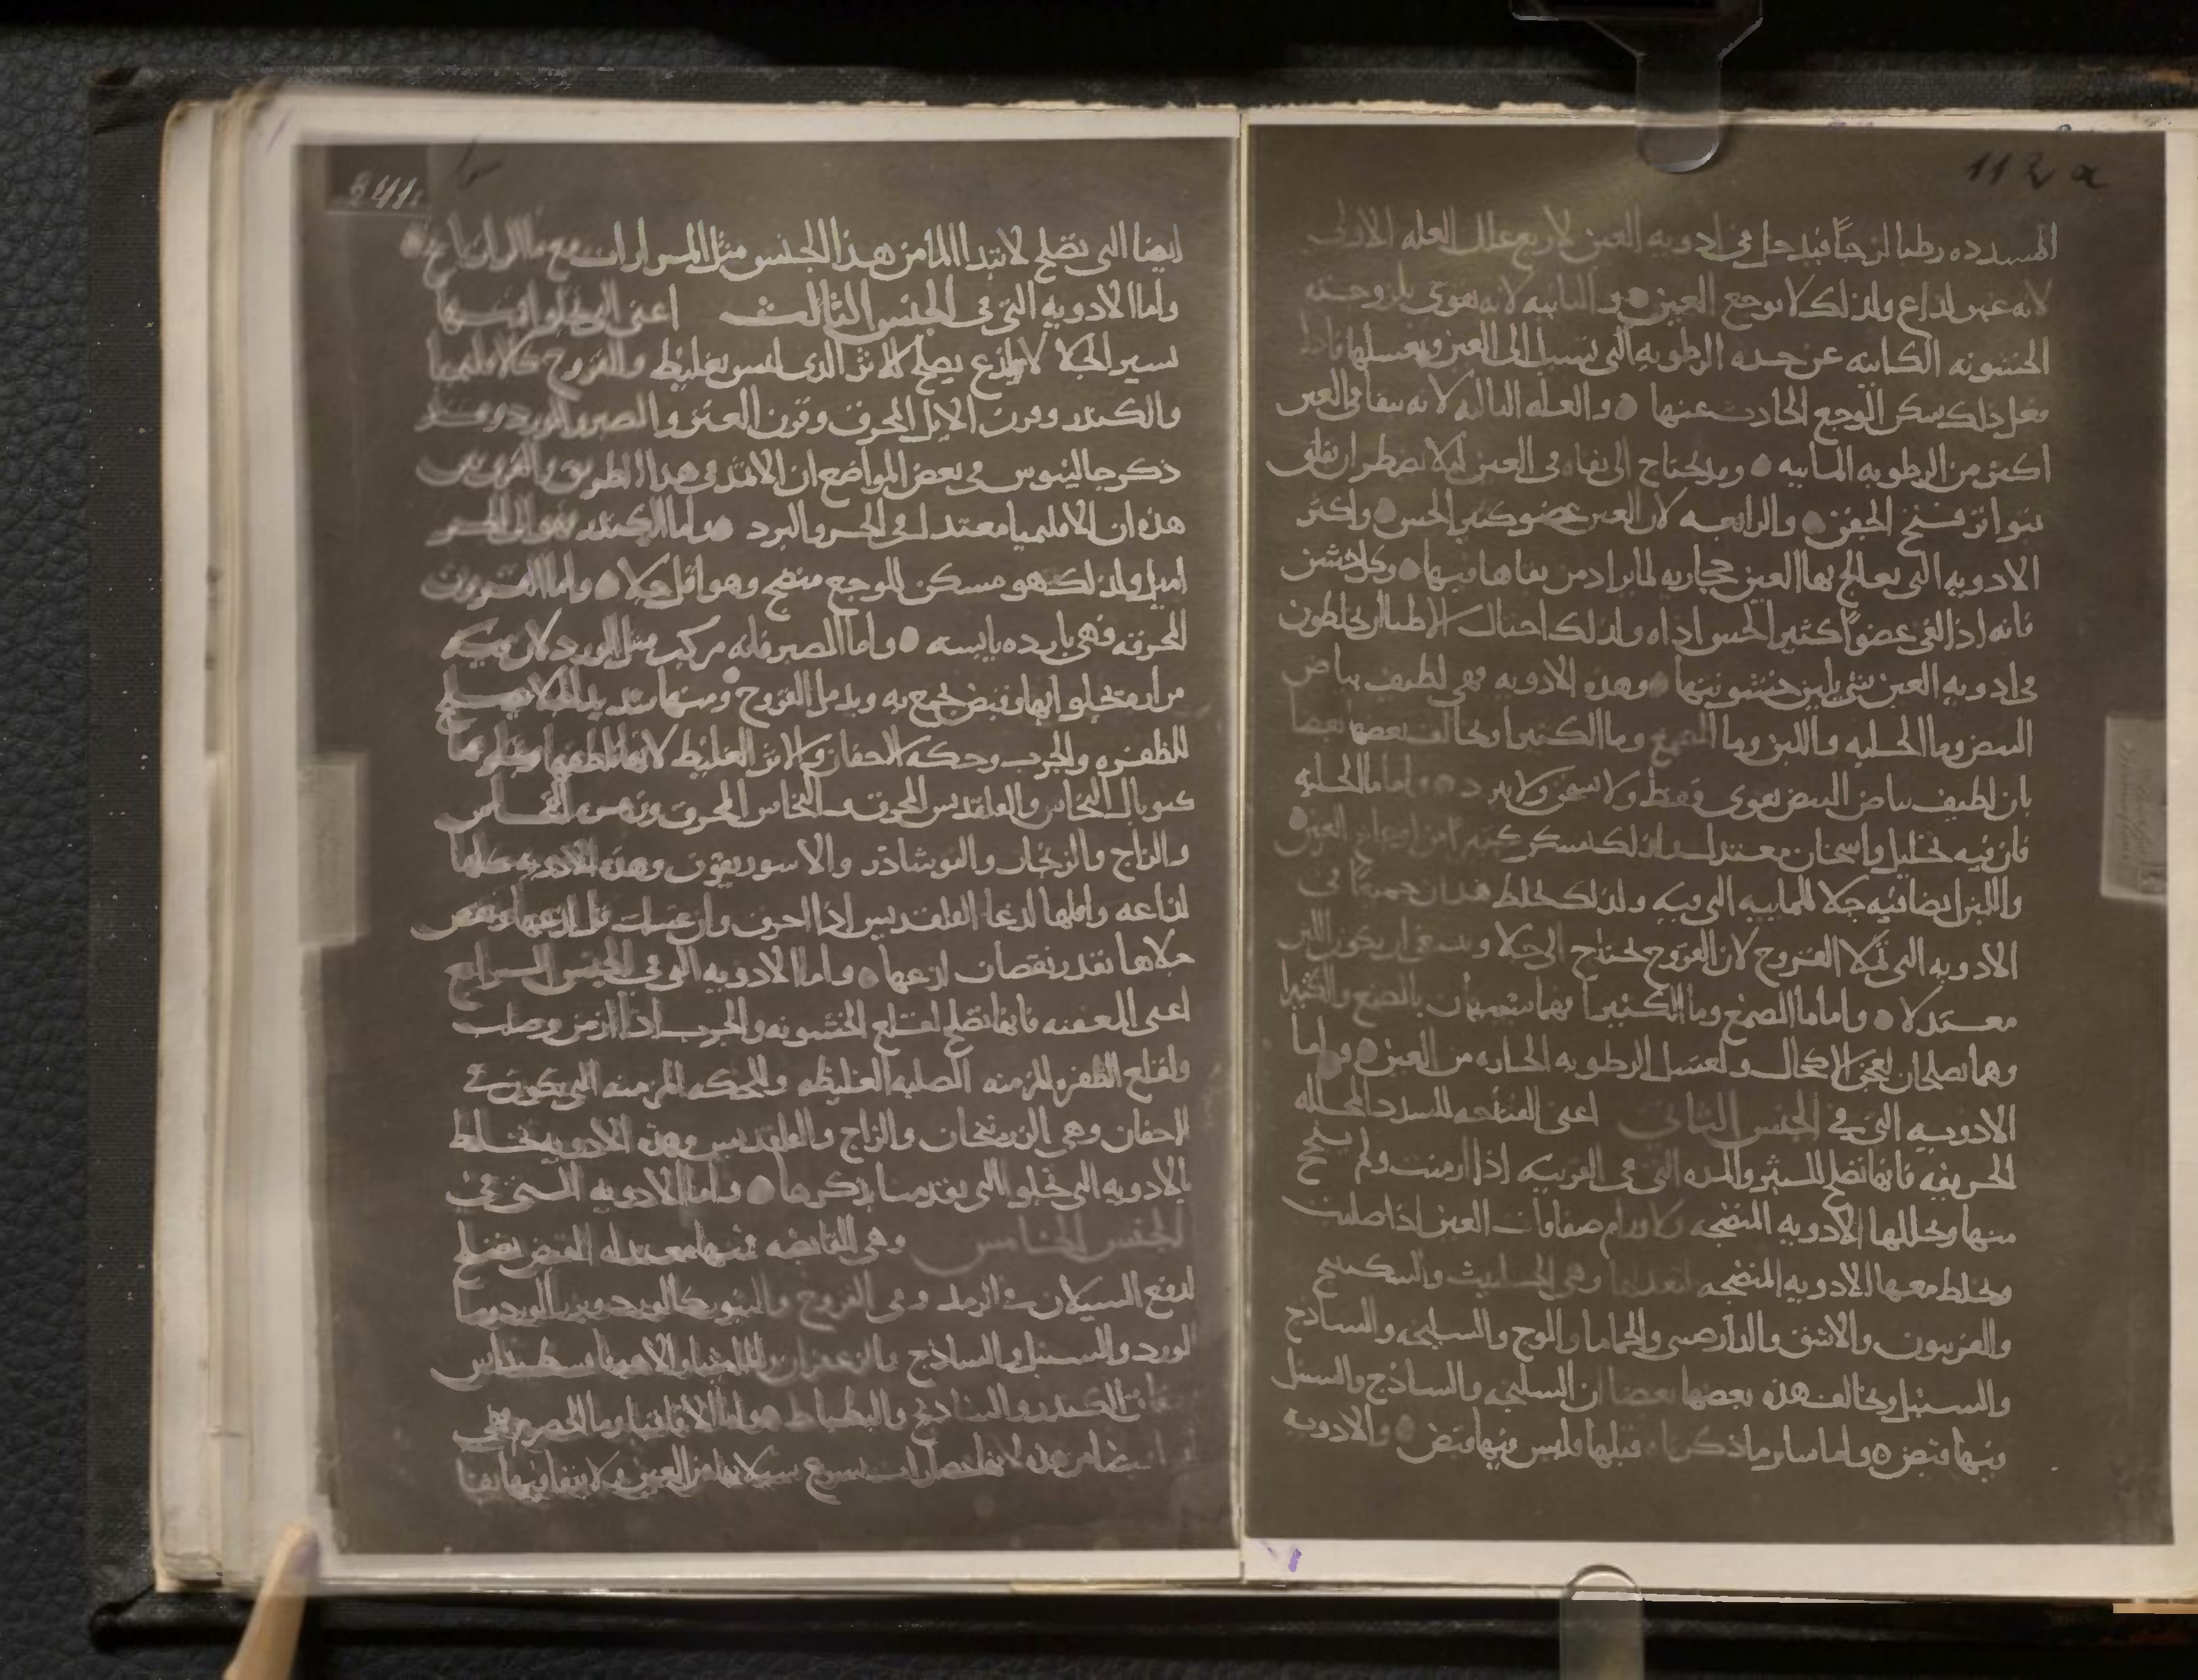 112 a
المسدده رطبا لزجاً فيدخل في ادويه العين لاربع علل العله الاولى
لانه غير لذاع ولذلك لا يوجع العين و الثانيه لانه يغرى بلزوجته
الخشونه الكاينه عن حده الرطوبه التى تسيل الى العين ويغسلها فاذا
فعل ذلك سكن الوجع الحادث عنها والعله الثالثه لانه يبقا في العين
اكثر من الرطوبه المائيه وقد يحتاج الى بقاه في العين ليلا نضطر ان نقلق
بتواتر فتح الجفن والرابعه لان العين عضو كثير الحس واكثر
الادويه التى يعالج بها العين حجاريه لما يراد من بقاها فيها وكل خشن
فانه اذا لقى عضواً كثير الحس اذاه ولذلك احتال الاطبا ان يخلطون
في ادويه العين شى يلين خشونتها وهذه الادويه فهى لطيف بياض
البيض وما الحلبه واللبن وما الصمغ وما الكثيرا وتخالف بعضها بعضا
بان لطيف بياض البيض يغرى فقط ولا يسخن ولا يبرد واما ما الحلبه
فان فيه تحليل واسخان معتدل ولذلك يسكن كثيراً من اوجاع العين
واللبن ايضا فيه جلا للمائيه التى فيه ولذلك يخلط هذان جميعاً في
الادويه التى تملا القروح لان القروح تحتاج الى جلا وينبغى ان يكون اللبن
معتدلا واما ما الصمغ وما الكثيرا فهما شبيهان بالصمغ والكثيرا
وهما يصلحان لعجن الاكحال ولغسل الرطوبه الحاده من العين واما
الادويه التى في الجنس الثاني اعنى الفتاحه للسدد المحلله
الحريفه فانها تصلح للبثر والمده التى في القرنيه اذا ازمنت ولم ينضج
منها وتحللها الادويه المنضجه ولاورام صفاقات العين اذا صلبت
وتخلط معها الادويه المنضجه لتعدلها وهى الحلتيت والسكبينج
والفربيون والاشق والدارصينى والحماما والوج والسليخه والساذج
والسنبل وتخالف هذه بعضها بعضا ان السليخه والساذج والسنبل
فيها قبض واما ساير ما ذكرنا قبلها فليس فيها قبض والادويه
241.
ايضا التى تصلح لابتدا الما من هذا الجنس مثل المرارات مع ما الرازيانج
واما الادويه التى في الجنس الثالث اعنى
يسير الجلا لا يلذع يصلح للاثر الذى ليس بغليظ والقروح كالاقليميا
والكندر وقرن الايل المحرق وقرن العنز والصبر والورد وقد
ذكر جالينوس في بعض المواضع ان الاثمد في هذا الطريق والفرق بين
هذه ان الاقليميا معتدل في الحر والبرد واما الكندر فهو الى الحر
اميل ولذلك هو مسكن للوجع منضج وهو اقل جلا واما القرون
المحرقه فهى بارده يابسه واما الصبر فانه مركب مثل الورد لان فيه
مراره تجلوا بها وقبض يجمع به ويدمل القروح ومنها شديد الجلا يصلح
للظفره والجرب وحكه الاجفان والاثر الغليظ لانها
كتوبال النحاس والقلقديس المحرق والنحاس المحرق وزهره النحاس
والزاج والزنجار والنوشادر والاسوريقون وهذه الادويه كلها
لذاعه واقلها لذعا القلقديس اذا احرق وان غسلت قل لذعها ونقص
جلاها بقدر نقصان لذعها واما الادويه التى في الجنس الرابع
اعنى المعفنه فانها تصلح لقلع الخشونه والجرب اذا ازمن وصلب
ولقلع الظفره المزمنه الصلبه الغليظه والحكه المزمنه التى تكون في
الاجفان وهى الزرنيخان والزاج والقلقديس وهذه الادويه تخلط
بالادويه التى تجلوا التى تقدمنا بذكرها واما الادويه التى في
الجنس الخامس وهى القابضه فمنها معتدله القبض تصلح
لدفع السيلان في الرمد وفي القروح والبثور كالورد وبزر الورد وما
الورد والسنبل والساذج والزعفران والماميثا
الكندر واما الاقاقيا وما الحصرم فهى
سيلانها من العين ولا يبقا فيها بقا